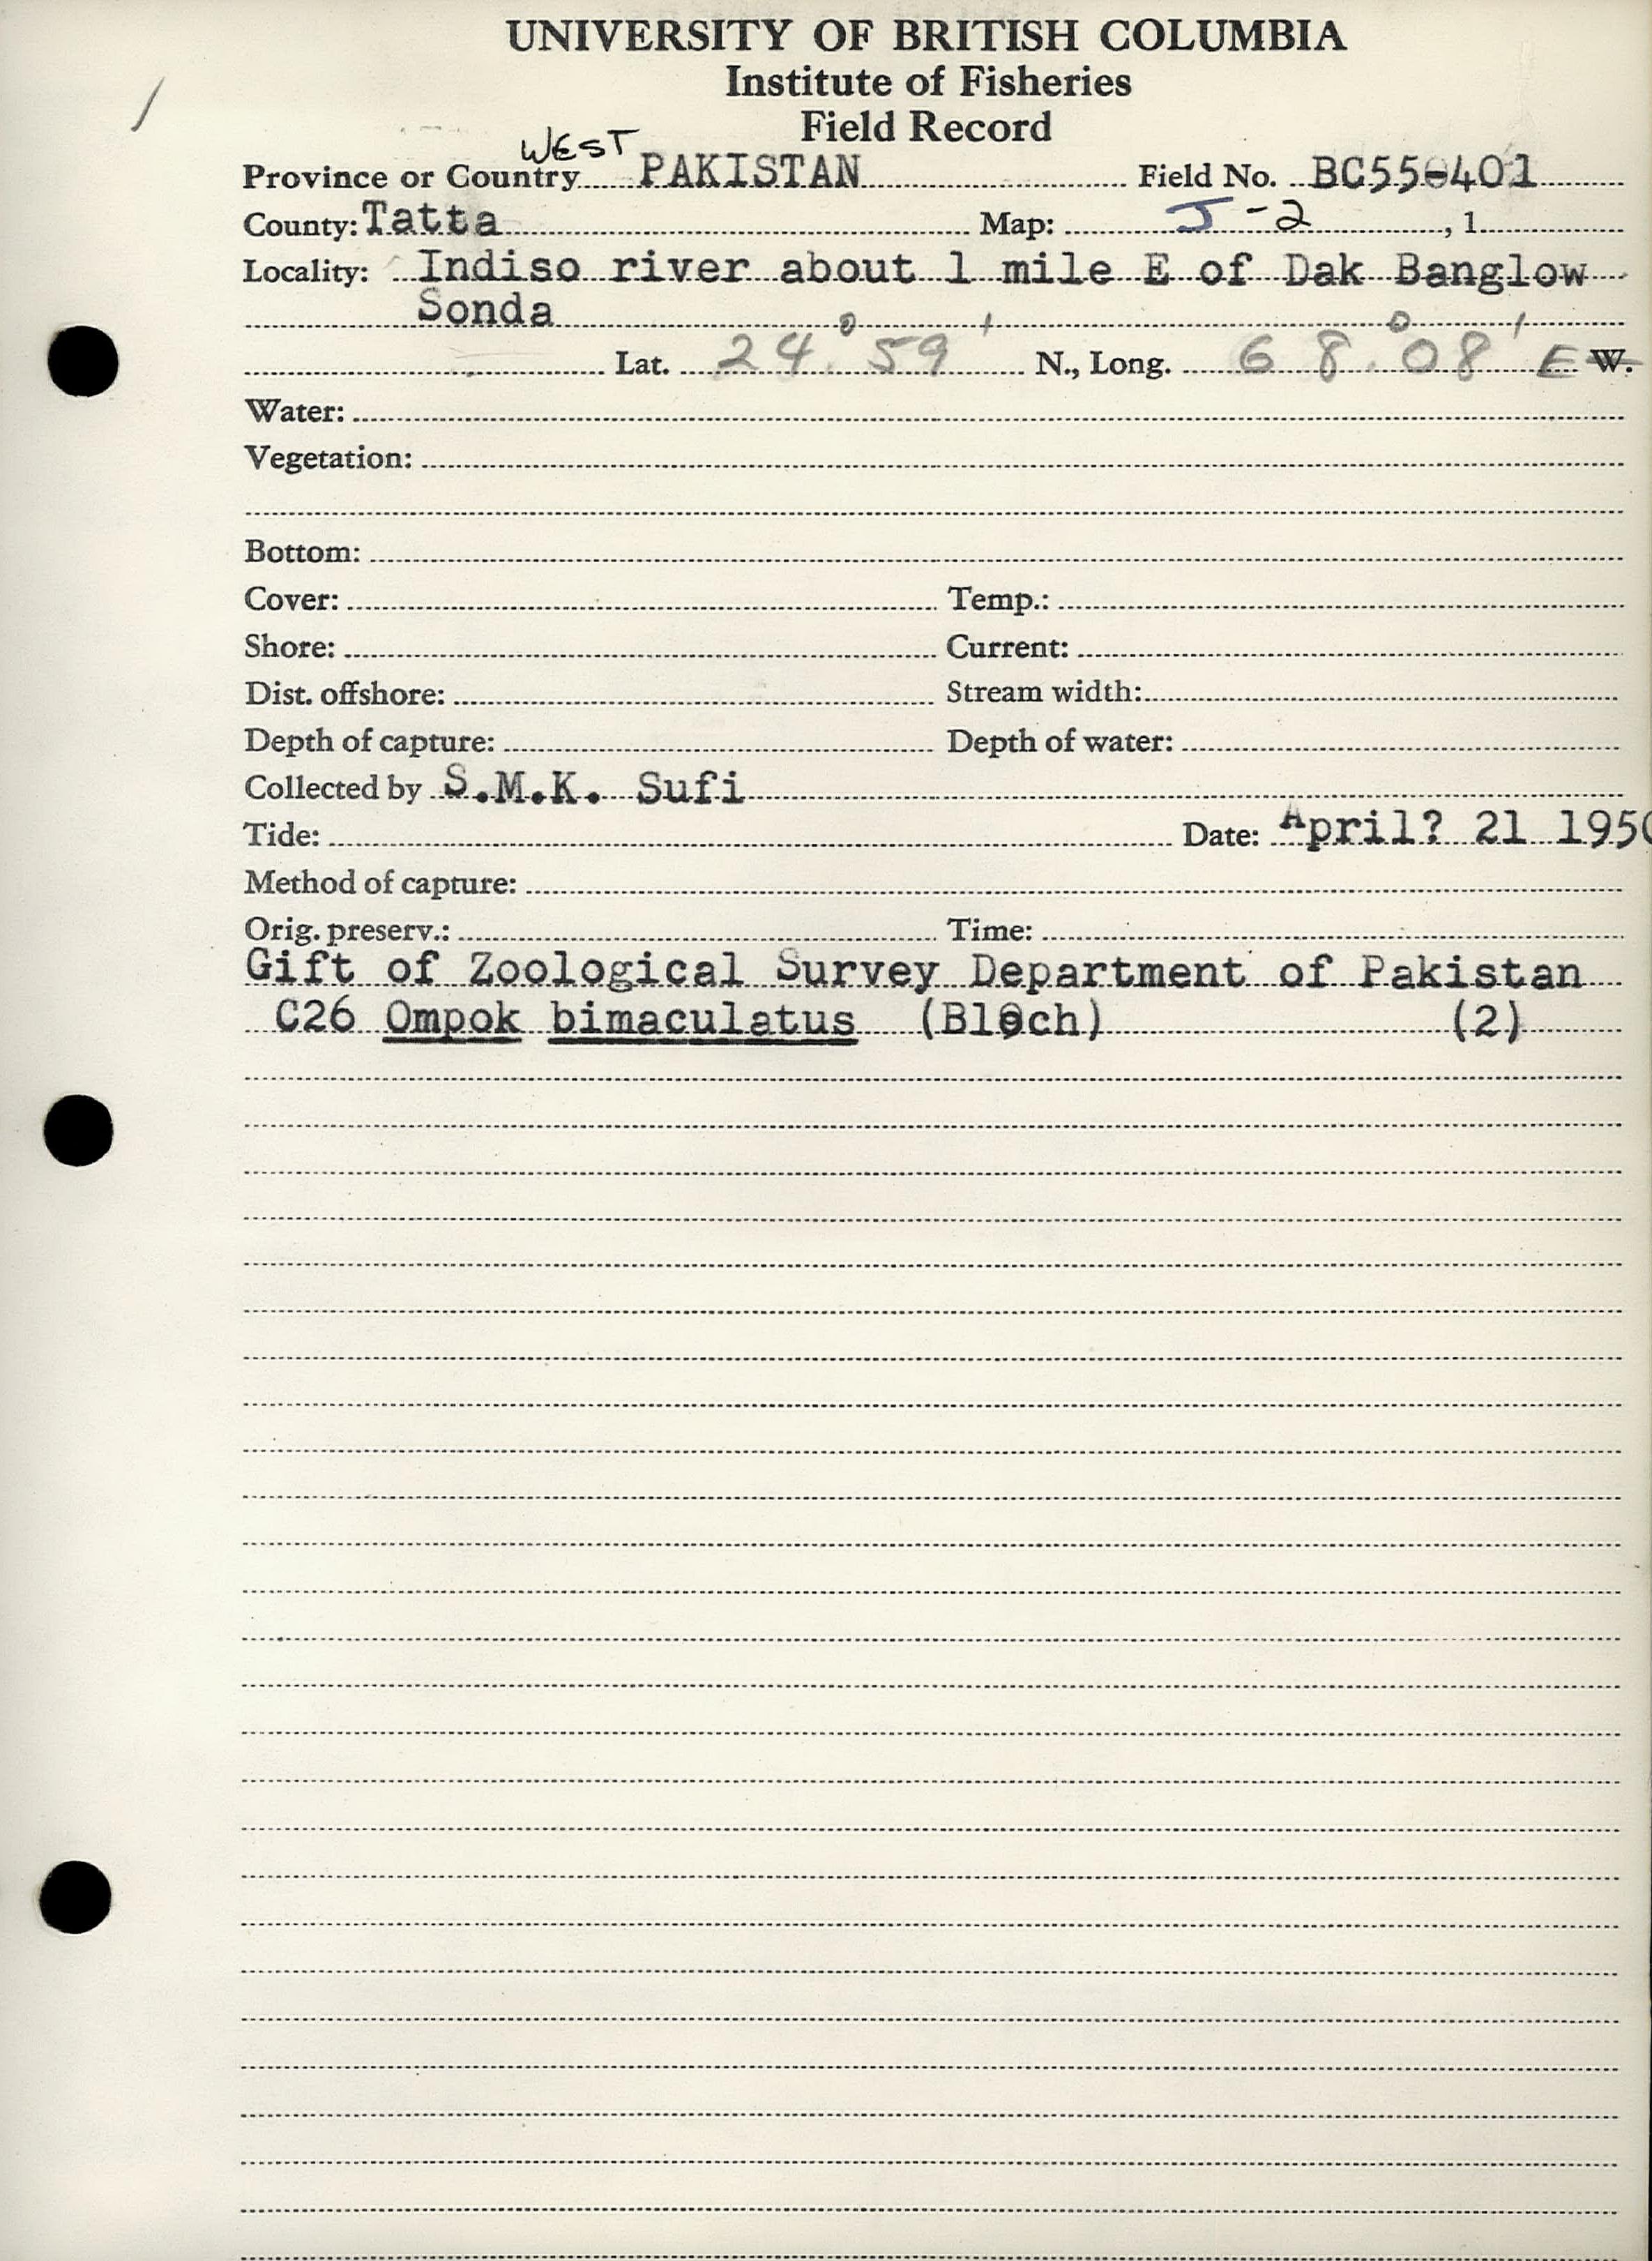 UNIVERSITY OF BRITISH COLUMBIA
Institute of Fisheries
Field Record
Province or Country WEST PAKISTAN Field No. BC55-401
County: Tatta Map: J-2, 1
Locality: Indiso river about 1 mile E of Dak Banglow
Sonda
Lat. 24° 59' N., Long. 68° 08' E W.
Water:
Vegetation:
Bottom:
Cover: Temp.:
Shore: Current:
Dist. offshore: Stream width:
Depth of capture: Depth of water:
Collected by S.M.K. Sufi
Tide: Date: April? 21 1950
Method of capture:
Orig. preserv.: Time:
Gift of Zoological Survey Department of Pakistan
C26 Ompok bimaculatus (Bloch) (2)